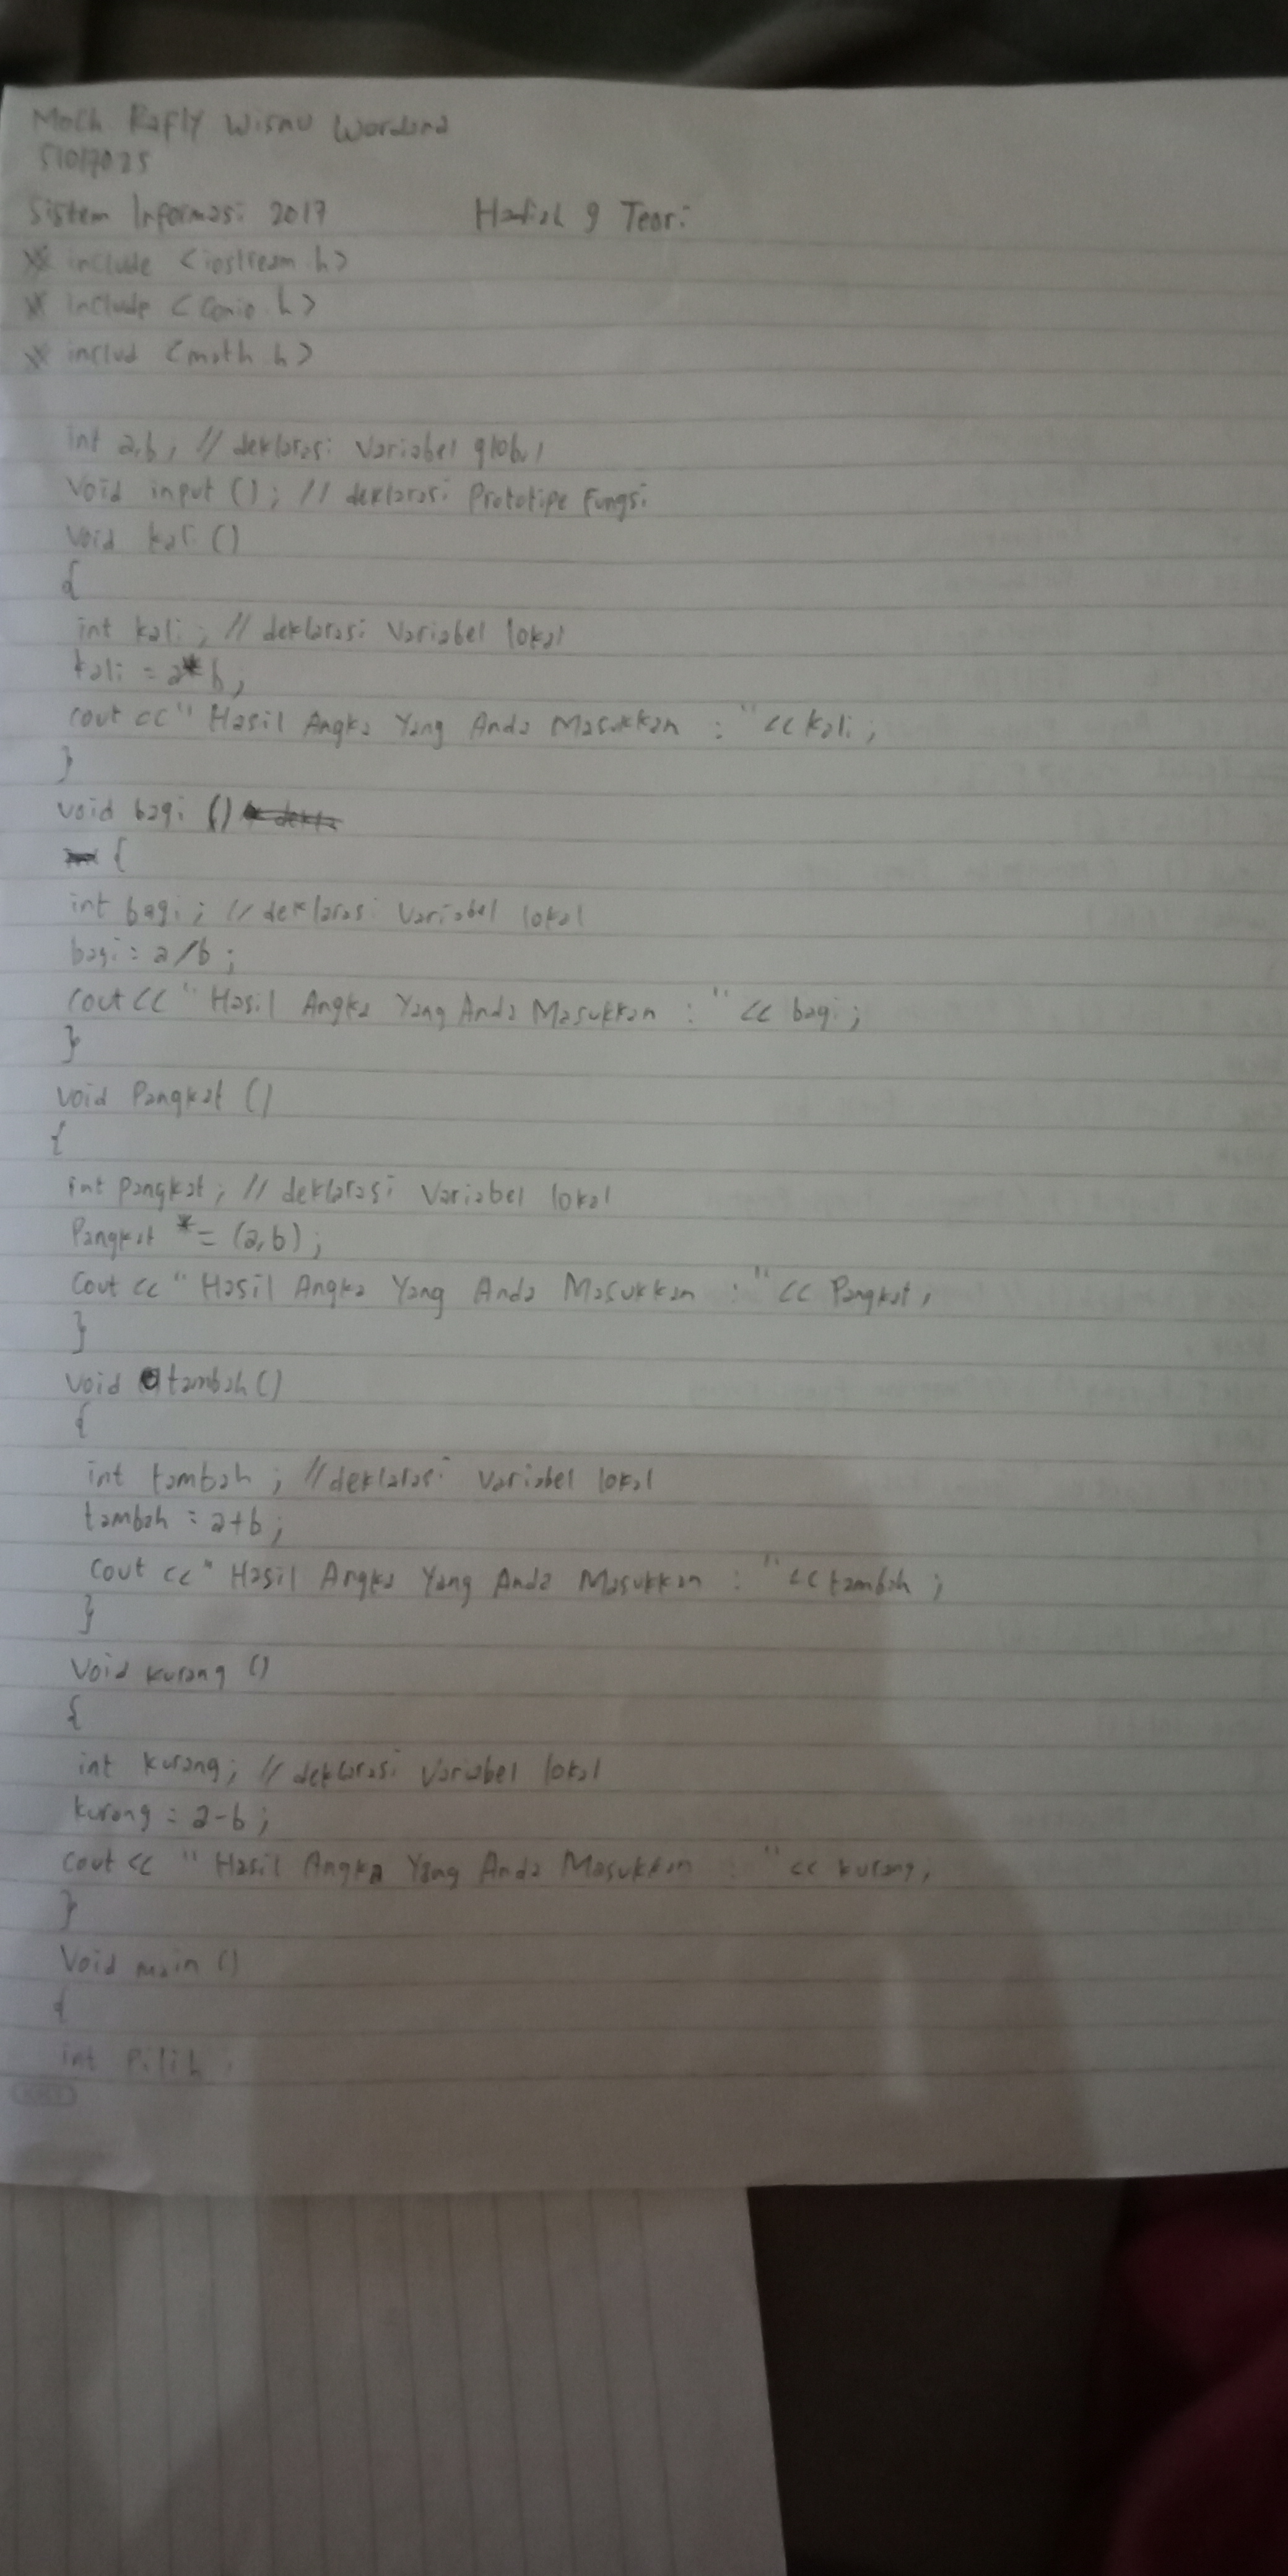 Moch Rafly Wisnu Wardana
51017025
Sistem Informasi 2017 Hafish 9 Teori
# include <iostream.h>
# include <conio.h>
# includ <math.h>
int a,b; // deklarasi Variabel global
Void input (); // deklarasi Prototipe Fungsi
Void kali ()
{
int kali; // deklarasi Variabel lokal
kali = a*b;
cout << " Hasil Angka Yang Anda Masukkan : " << kali;
}
void bagi ()
{
int bagi; // deklarasi Variabel lokal
bagi = a/b;
cout << " Hasil Angka Yang Anda Masukkan : " << bagi;
}
void Pangkat ()
{
int pangkat; // deklarasi Variabel lokal
Pangkat *= (a,b);
Cout << " Hasil Angka Yang Anda Masukkan : " << Pangkat;
}
void tambah ()
{
int tambah; // deklarasi Variabel lokal
tambah = a+b;
Cout << " Hasil Angka Yang Anda Masukkan : " << tambah;
}
Void kurang ()
{
int kurang; // deklarasi Variabel lokal
kurang = a-b;
cout << " Hasil Angka Yang Anda Masukkan : " << kurang;
}
Void main ()
{
int Pilih;